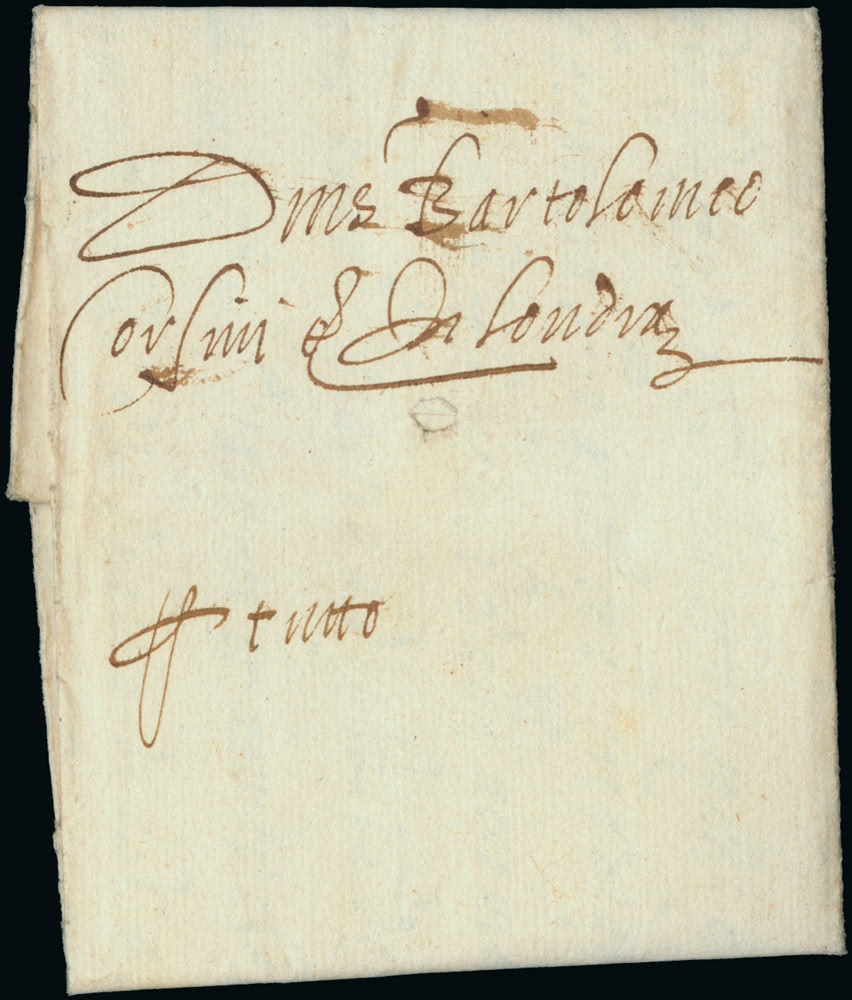 Dms Bartolomeo
Corsini & In Londra
ff tutto